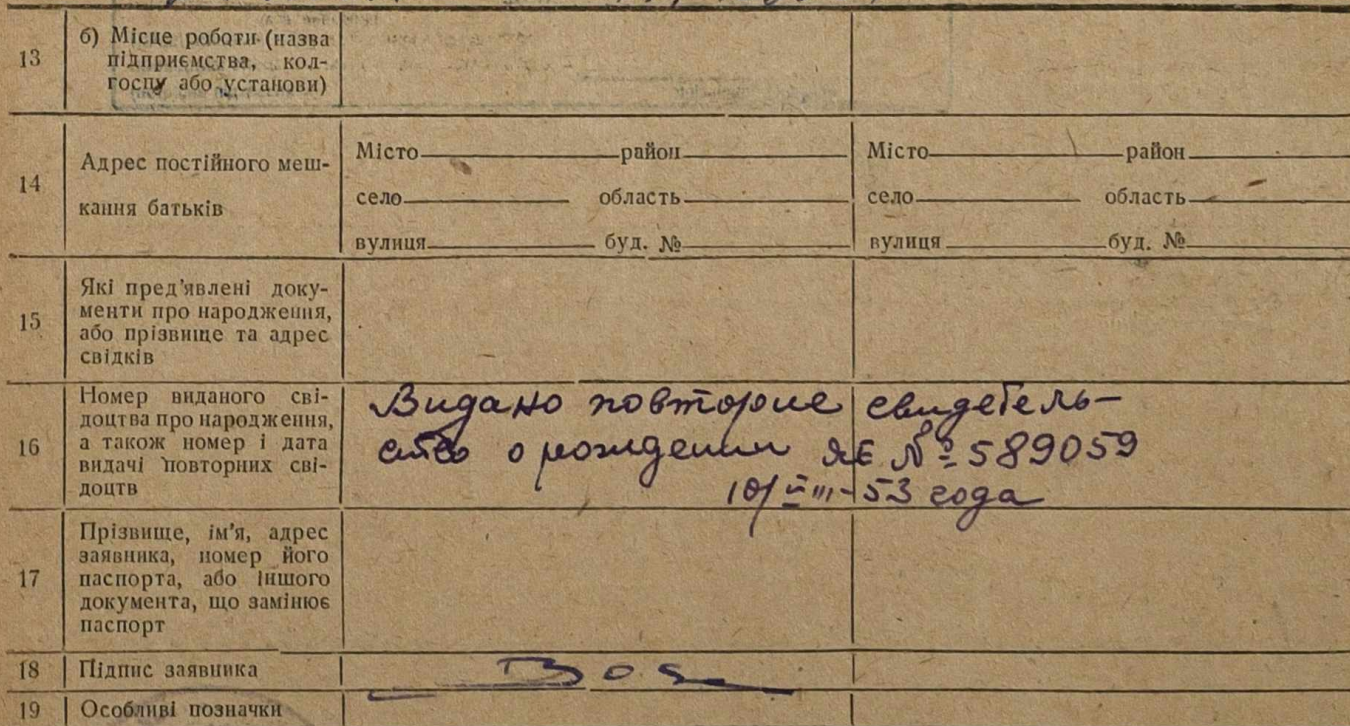 13
б) Місце роботи (назва
підприємства, кол-
госпу або установи)
14
Адрес постійного меш-
кання батьків
Місто район
село область
вулиця буд. №
Місто район
село область
вулиця буд. №
15
Які пред'явлені доку-
менти про народження,
або прізвище та адрес
свідків
16
Номер виданого сві-
доцтва про народження,
а також номер і дата
видачі повторних сві-
доцтв
Видано повторне свидетель-
ство о рождении ЯЄ № 589059
10/VIII-53 года
17
Прізвище, ім'я, адрес
заявника, номер його
паспорта, або іншого
документа, що замінює
паспорт
18
Підпис заявника
19
Особливі позначки